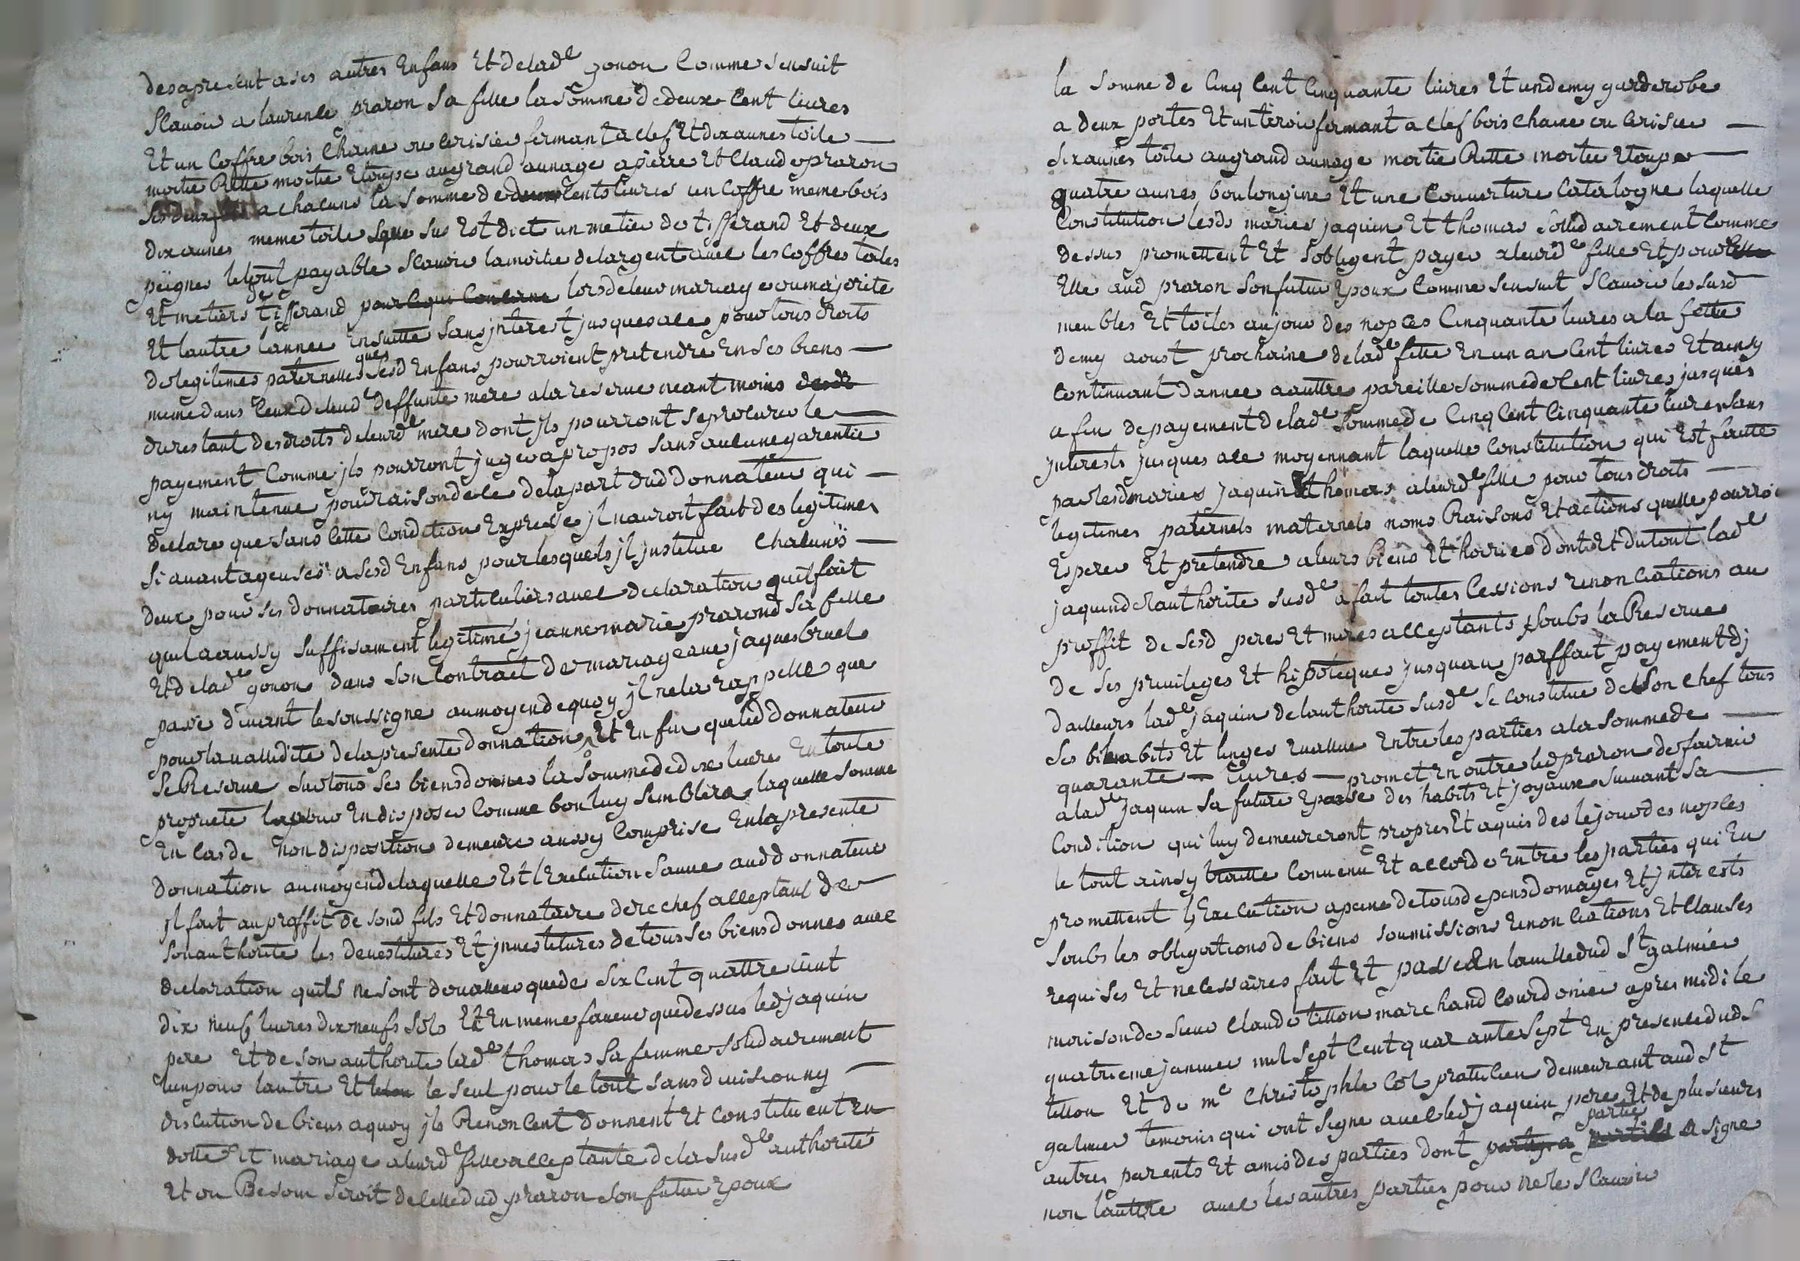 desapresent a ses autres Enfans Et de lad.e gonon Comme sensuit
Scavoir a laurence praron sa fille la somme de deux Cent livres
Et un Coffre bois Chaine ou Cerisier fermant a clef Et dix aunes toile
moitie Ritte moitie Etoupe au grand aunage a pierre Et Claude praron
ses deux fils a chacuns la somme de deux Cents livres un Coffre meme bois
dix aunes meme toile que sus Est dict un metier de tisserand Et deux
peignes le tout payable Scavoir la moitie de largent avec les Coffres toiles
Et metiers de tisserand pour ce qui Concerne lors de leur mariage ou majorite
Et lautre lannee Ensuitte sans jnterest jusques a ce pour tous droits
de legitimes paternelles que sesd Enfans pourroient pretendre En ses biens
meme dans Ceux de leud.e deffunte mere a la reserve neant moins
du restant des droits de leurd.e mere dont jls pourront se procurer le
payement Comme jls pourront juger a propos sans aucune garentie
ny maintenue pour raison de ce de la part dud donnateur qui
declare que sans cette Condition Expresse jl nauroit fait des legitimes
si avantageuses a sesd Enfans pour lesquels jl jnstitue Chacuns
deux pour ses donnataires particuliers avec declaration quil fait
quil a aussy suffisament legitime jeanne marie prarond sa fille
Et de lad.e gonon dans son Contract de mariage avec jaques bruel
passe devant le soussigne au moyen de quoy jl ne la rappelle que
pour la validite de la presente donnation Et En fin que led donnateur
se Reserve sur tous ses biens donnes la somme de dix livres En toute
propriete pour En disposer Comme bon luy semblera laquelle somme
En Cas de non disposition demeure aussy Comprise En la presente
donnation au moyen de laquelle Et lExecution sauve aud donnateur
jl fait au proffit de sond fils Et donnataire derechef acceptant de
son authorite les devestitures Et jnvestitures de tous ses biens donnes avec
declaration quils ne sont de valleur que de six Cent quattre vint
dix neuf livres dix neufs sols Et En meme faveur que dessus led jaquin
pere Et de son authorite lad.e thomas sa femme solidairement
lun pour lautre Et le seul pour le tout sans division ny
discution de biens a quoy jls Renoncent donnent Et constituent En
dotte Et mariage a leurd.e fille acceptante de la susd.e authorite
Et ou Besoin seroit de celle dud praron son futur Epoux
la somme de Cinq Cent Cinquante livres Et un demy garderobe
a deux portes Et un tiroir fermant a clef bois chaine ou Cerisier
dix aunes toile au grand aunage moitie Ritte moitie Etoupe
quatre aunes boulongine Et une Couverture Catalogne laquelle
Constitution lesds maries jaquin Et thomas sollidairement Comme
dessus promettent Et sobligent payer a leurd.e fille Et pour
Elle aud praron son futur Epoux Comme sensuit Scavoir les susd
meubles Et toiles au jour des nopces Cinquante livres a la fette
demy aoust prochaine de lad.e fette En un an Cent livres Et ainsy
Continuant dannee a auttre pareille somme de Cent livres jusques
a fin de payement de lad.e somme de Cinq Cent Cinquante livres sans
jnterests jusques a ce moyennant laquelle Constitution qui Est faitte
par lesd maries jaquin Et thomas a leurd.e fille pour tous droits
legitimes paternels maternels noms Raisons Et actions quelle pourroit
Esperer Et pretendre a leurs biens Et hoiries dont Et du tout lad.e
jaquin de lauthorite susd.e a fait toutes Cessions renonciations au
proffit de sesd peres Et meres acceptants soubs la Reserve
de ses privileges Et hipoteques jusquau parffait payement dj
dailleurs lad.e jaquin de lauthorite susd.e se constitue de son chef tous
ses habits Et linges Evallue Entre les parties a la somme de
quarante livres promet En outre led praron de fournir
a lad.e jaquin sa future Epouse des habits Et joyaux suivant sa
Condition qui luy demeureront propres Et aquis des le jour des nopces
le tout ainsy Convenu Et accorde Entre les parties qui En
promettent lExecution a peine de tous depens domages Et jnterests
soubs les obligations de biens soumissions renonciations Et clauses
requises Et necessaires fait Et passe En la ville dud St galmier
maison de sieur Claude tillon marchand Courdonier apres midi le
quatrieme janvier mil sept Cent quarante sept En presence duds
tillon Et de m.e Christophle Col praticien demeurant aud St
galmier temoins qui ont signe avec led jaquin pere Et de plusieurs
autres parents Et amis des parties dont partie a signe
non lauttre avec les autres parties pour ne le scavoir